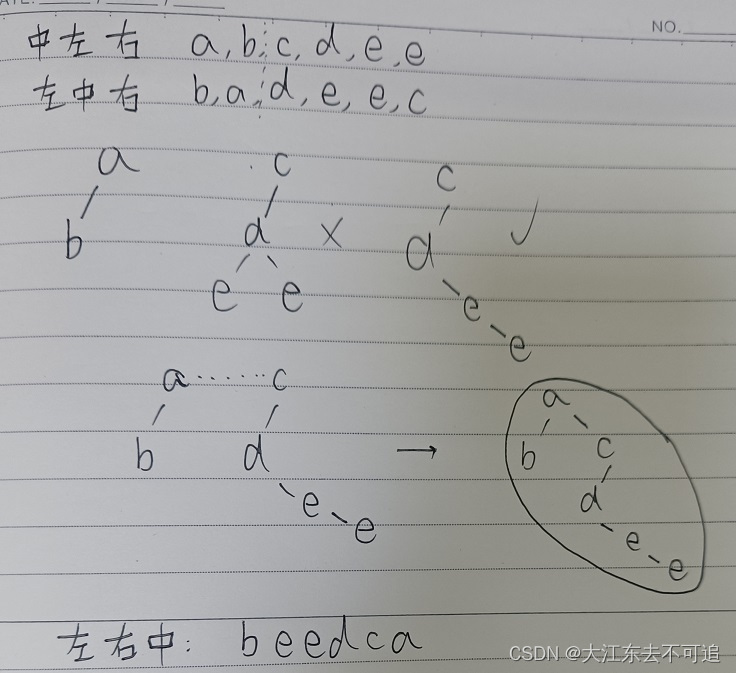 NO.
中左右 a,b,c,d,e,e
左中右 b,a,d,e,e,c
a c c
b d × d ✓
e e e
e
a……c a
b d → b c
e d
e e
e
左右中: beedca
CSDN @大江东去不可追